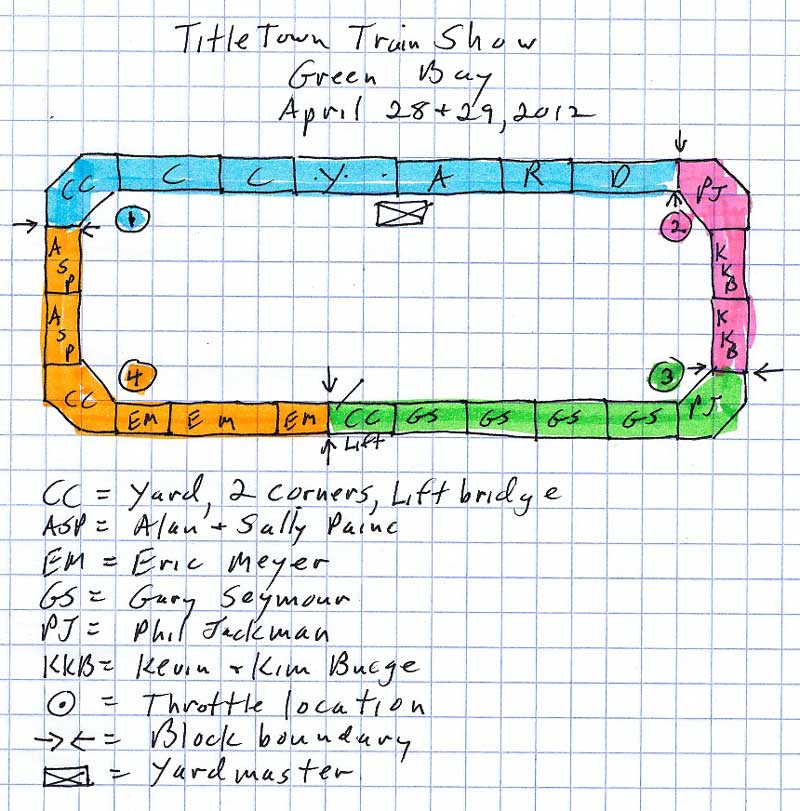 TitleTown Train Show
Green Bay
April 28+29, 2012
CC C C Y A R D PJ
1 2
ASP KKB
ASP KKB
4 3
CC EM EM EM CC GS GS GS GS PJ
Lift
CC = Yard, 2 corners, Lift bridge
ASP = Alan + Sally Paine
EM = Eric Meyer
GS = Gary Seymour
PJ = Phil Jackman
KKB = Kevin + Kim Buege
= Throttle location
→← = Block boundary
= Yardmaster